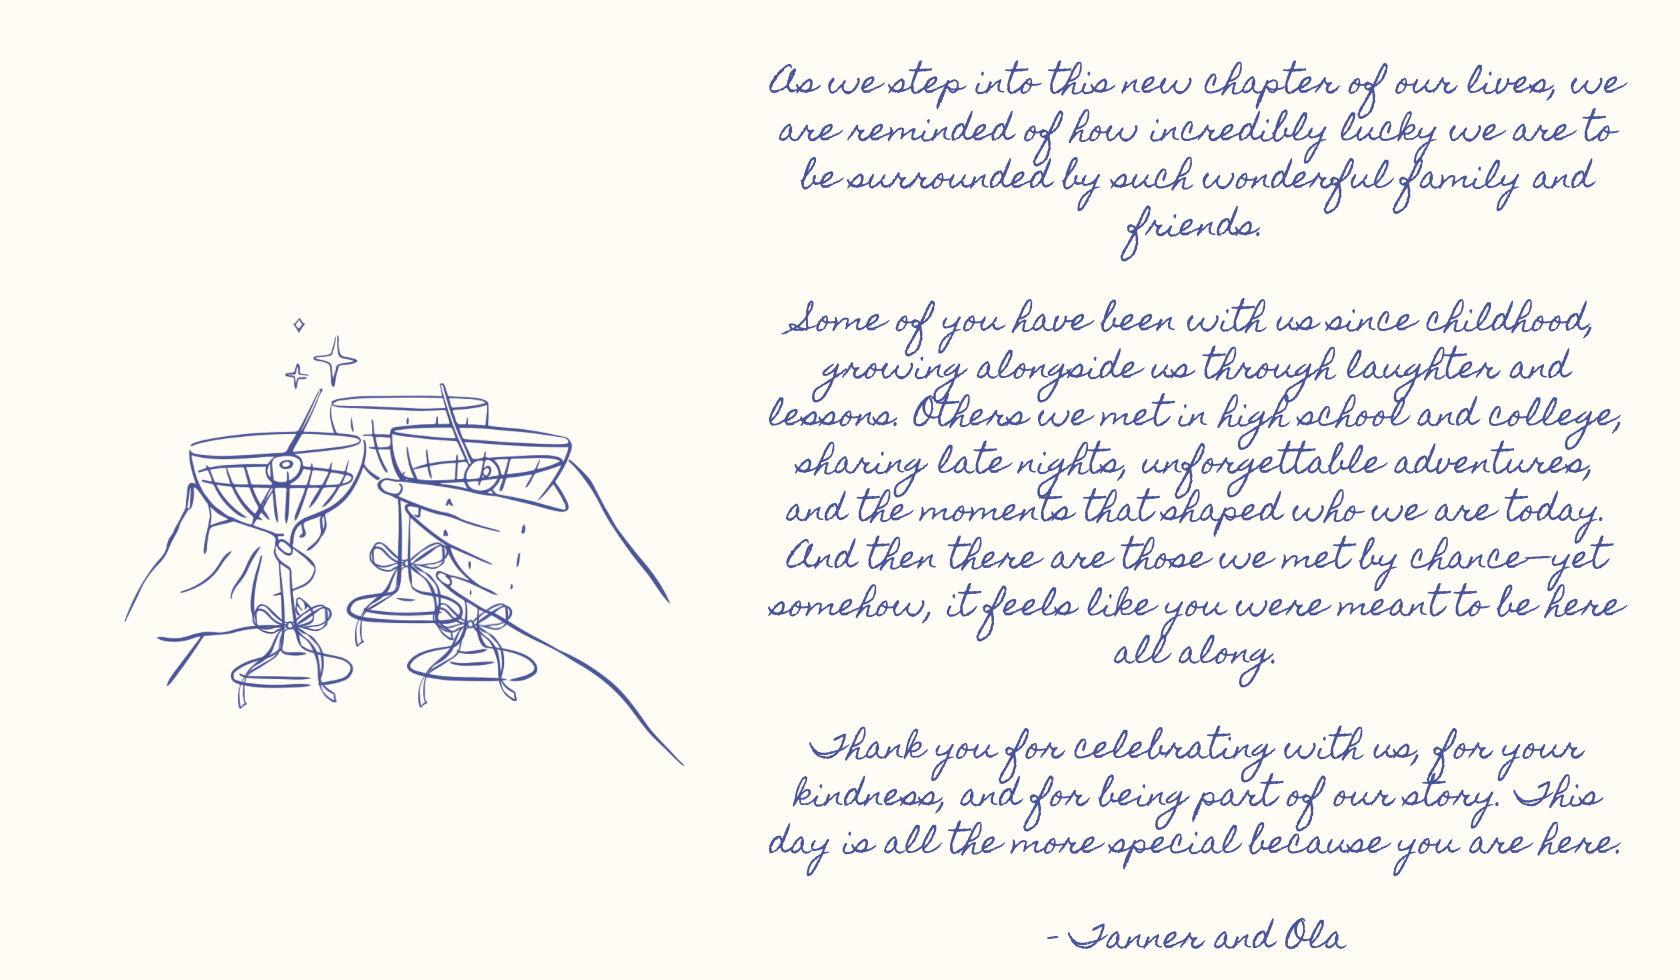 As we step into this new chapter of our lives, we
are reminded of how incredibly lucky we are to
be surrounded by such wonderful family and
friends.
Some of you have been with us since childhood,
growing alongside us through laughter and
lessons. Others we met in high school and college,
sharing late nights, unforgettable adventures,
and the moments that shaped who we are today.
And then there are those we met by chance—yet
somehow, it feels like you were meant to be here
all along.
Thank you for celebrating with us, for your
kindness, and for being part of our story. This
day is all the more special because you are here.
- Tanner and Ola